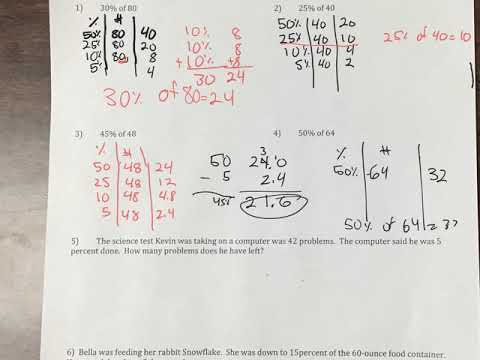 1) 30% of 80
% #
50% 80 40
25% 80 20
10% 80 8
5% 4
10% 8
10% 8
+ 10% +8
30 24
30% of 80=24
2) 25% of 40
50% 40 20
25% 40 10
10% 40 4
5% 40 2
25% of 40=10
3) 45% of 48
% #
50 48 24
25 48 12
10 48 4.8
5 48 2.4
50
- 5
45%
3
24.0
2.4
21.6
4) 50% of 64
% #
50% 64 32
50% of 64 = 32
5) The science test Kevin was taking on a computer was 42 problems. The computer said he was 5
percent done. How many problems does he have left?
6) Bella was feeding her rabbit Snowflake. She was down to 15percent of the 60-ounce food container.